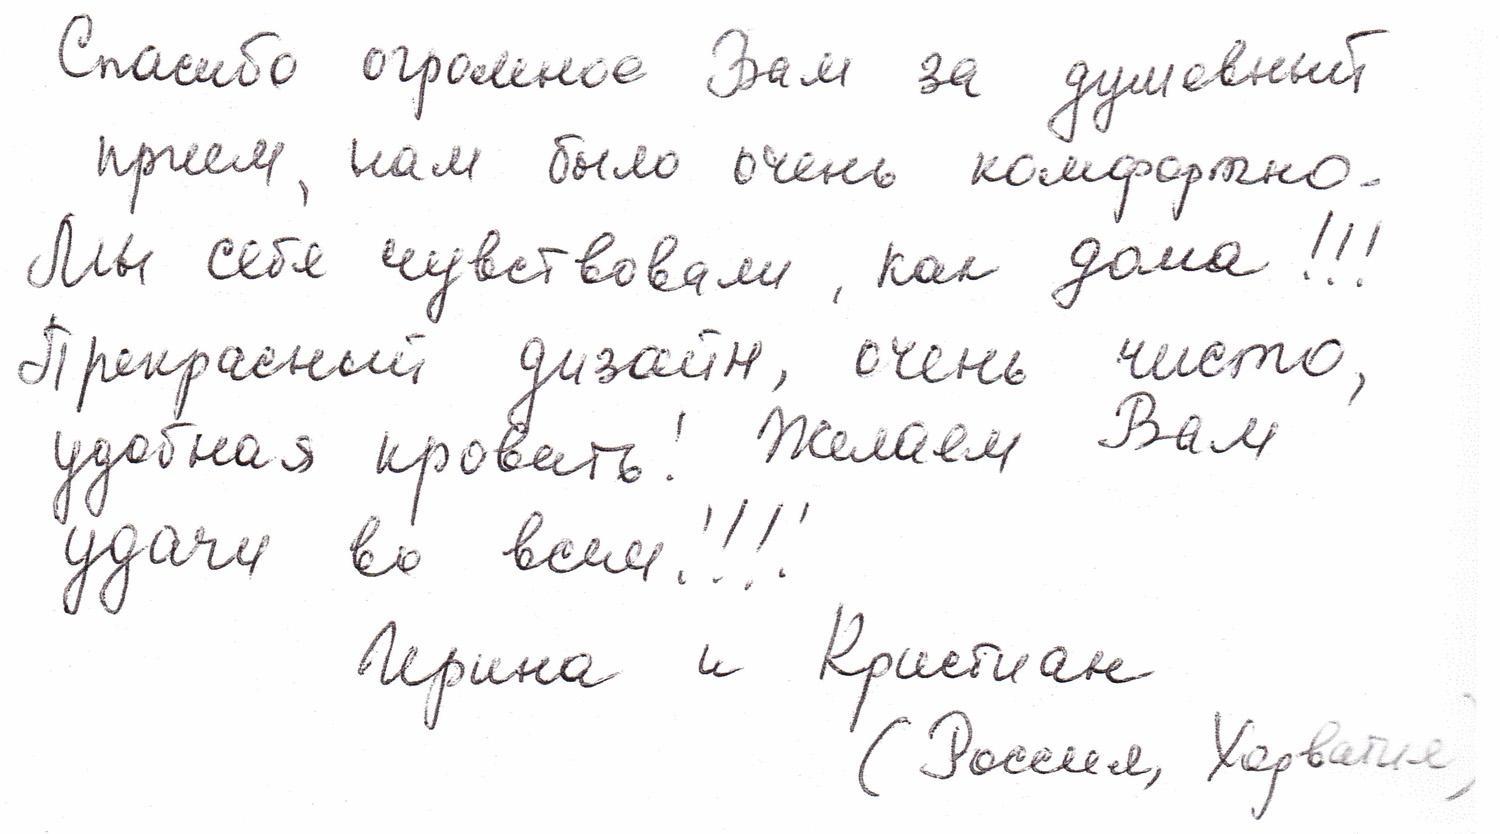 Спасибо огромное Вам за душевный
прием, нам было очень комфортно.
Мы себя чувствовали, как дома!!!
Прекрасный дизайн, очень чисто,
удобная кровать! Желаем Вам
удачи во всем!!!!
Ирина и Кристиан
(Россия, Хорватия)